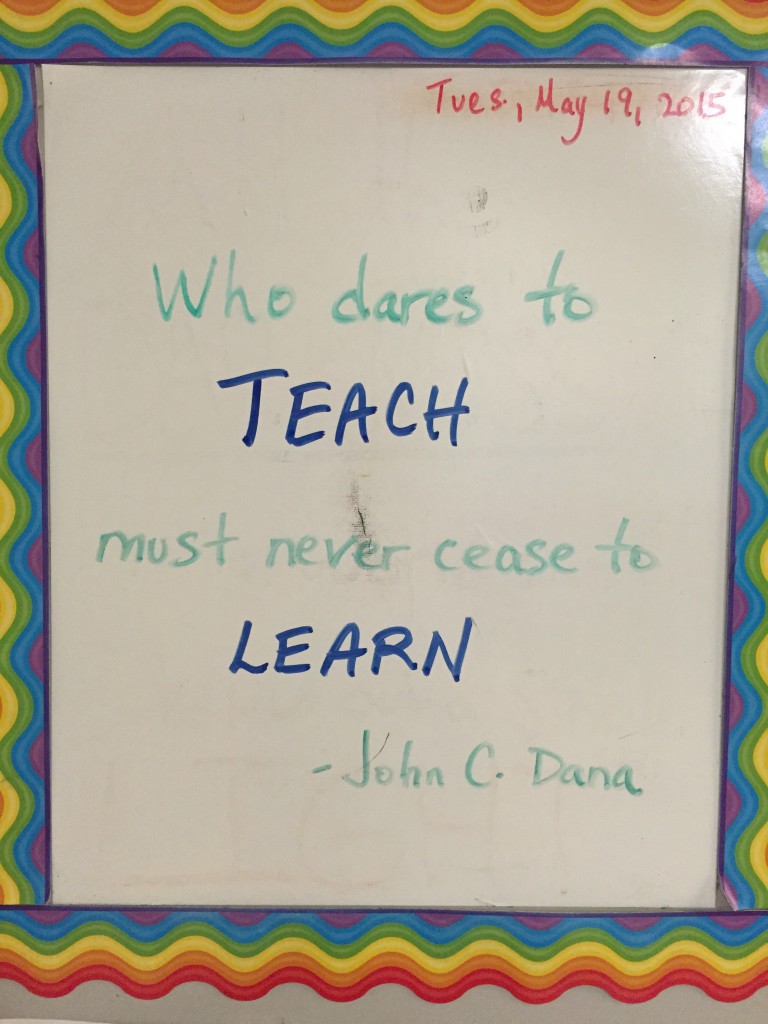 Tues., May 19, 2015
Who dares to
TEACH
must never cease to
LEARN
- John C. Dana